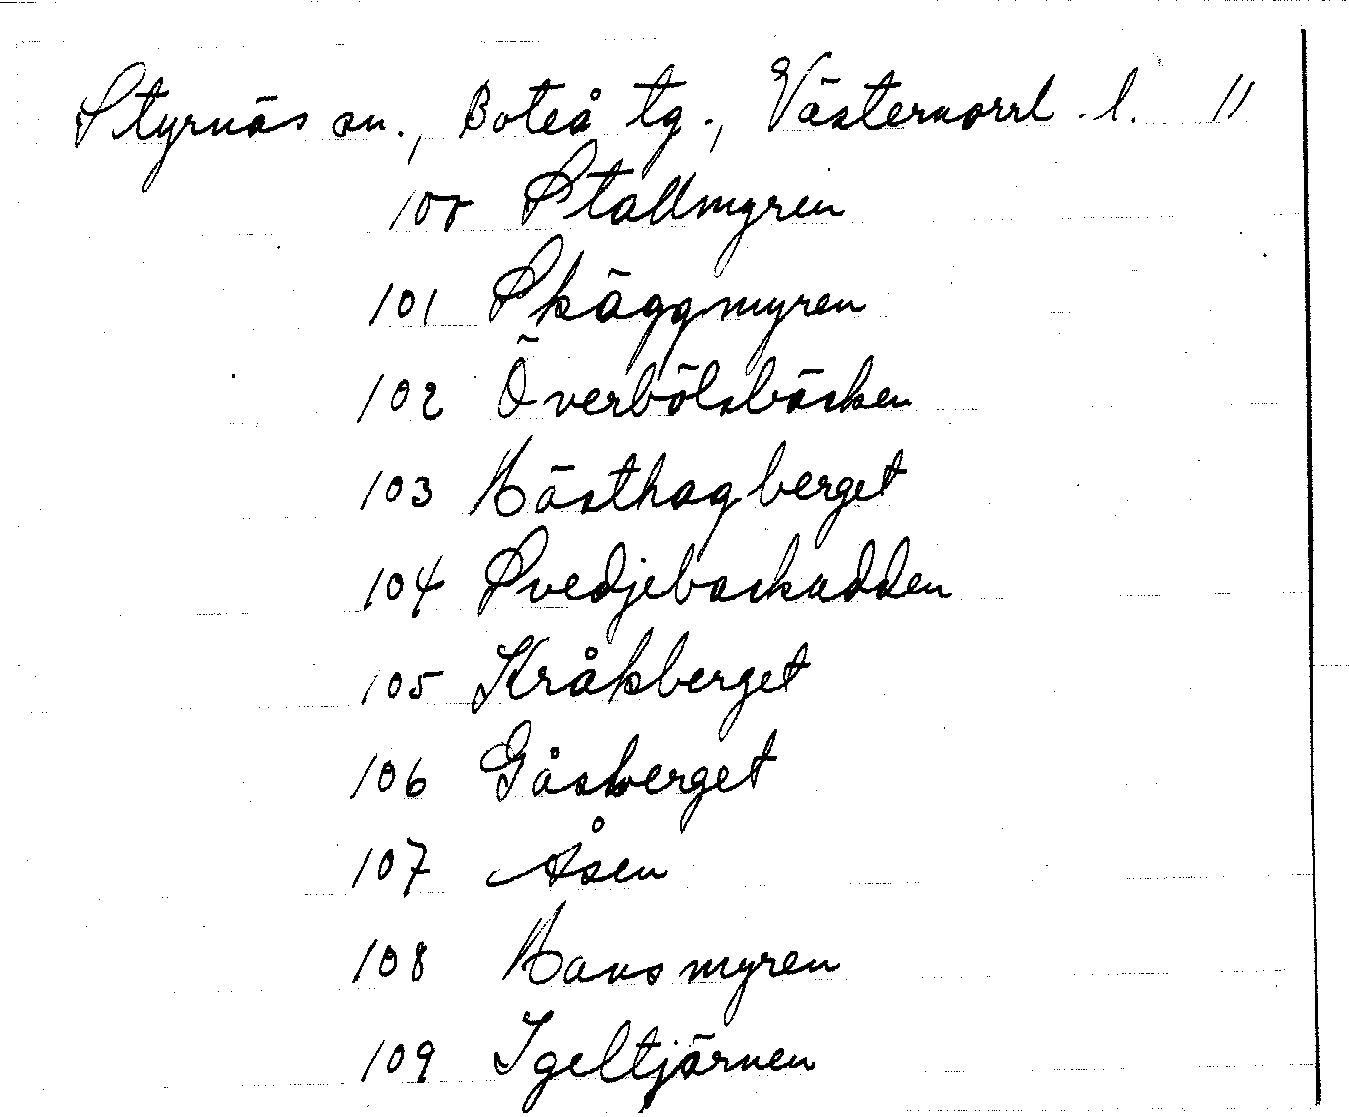 Styrnäs sn., Boteå tg., Västernorrl. l. 11
100 Stallmyren
101 Skäggmyren
102 Överbölsbäcken
103 Hästhagberget
104 Svedjebackudden
105 Kråkberget
106 Gåsberget
107 Åsen
108 Hansmyren
109 Igeltjärnen